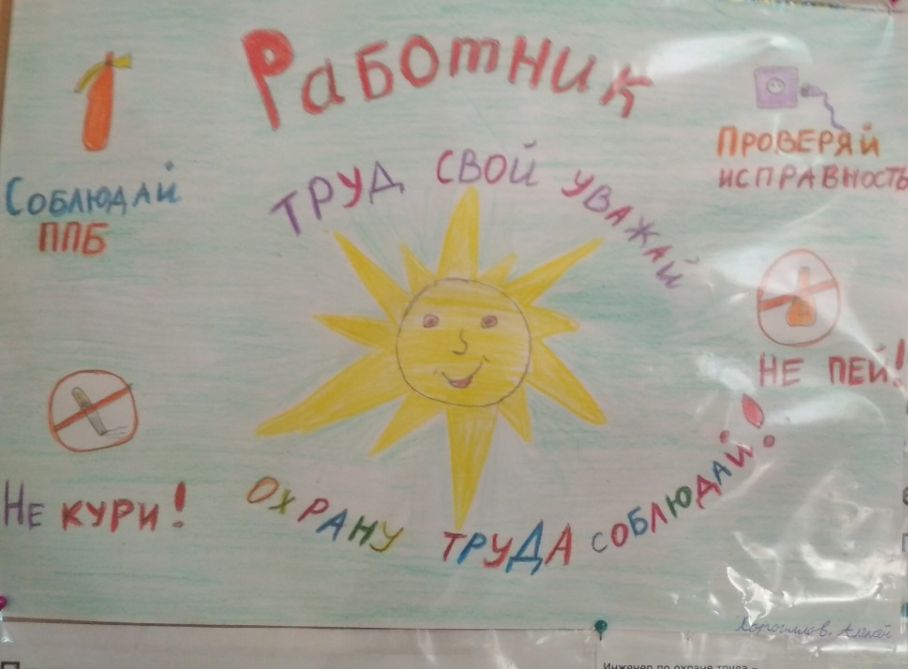 Работник
Труд свой уважай
Соблюдай
ППБ
Проверяй
исправность
Не пей!
Не кури!
Охрану труда соблюдай!
Инженер по охране труда –